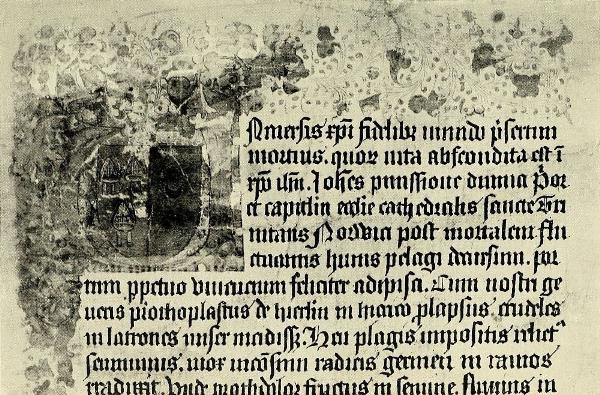 Niuersis xpi fidelibȝ mundo p̄sertim
mortius. quoꝝ uita abscondita est ī
xpo ihu. Johes pmissione diuina Por
et capitlm ecclie cathedralis sancte Tri
nitatis Norwici post mortalem flu
ctuantis huius pelagi decursum. por
tum ppetuo uiuencium feliciter adipisci. Cum nostri ge
neris prothoplastus de hierlm in iherico, plapsus crudeles
in latrones miser incidiss. Heu plagis impositis relict
semiuiuus. mox
radicis germen in ramos
Vnde
fructus in semine. fluuius in